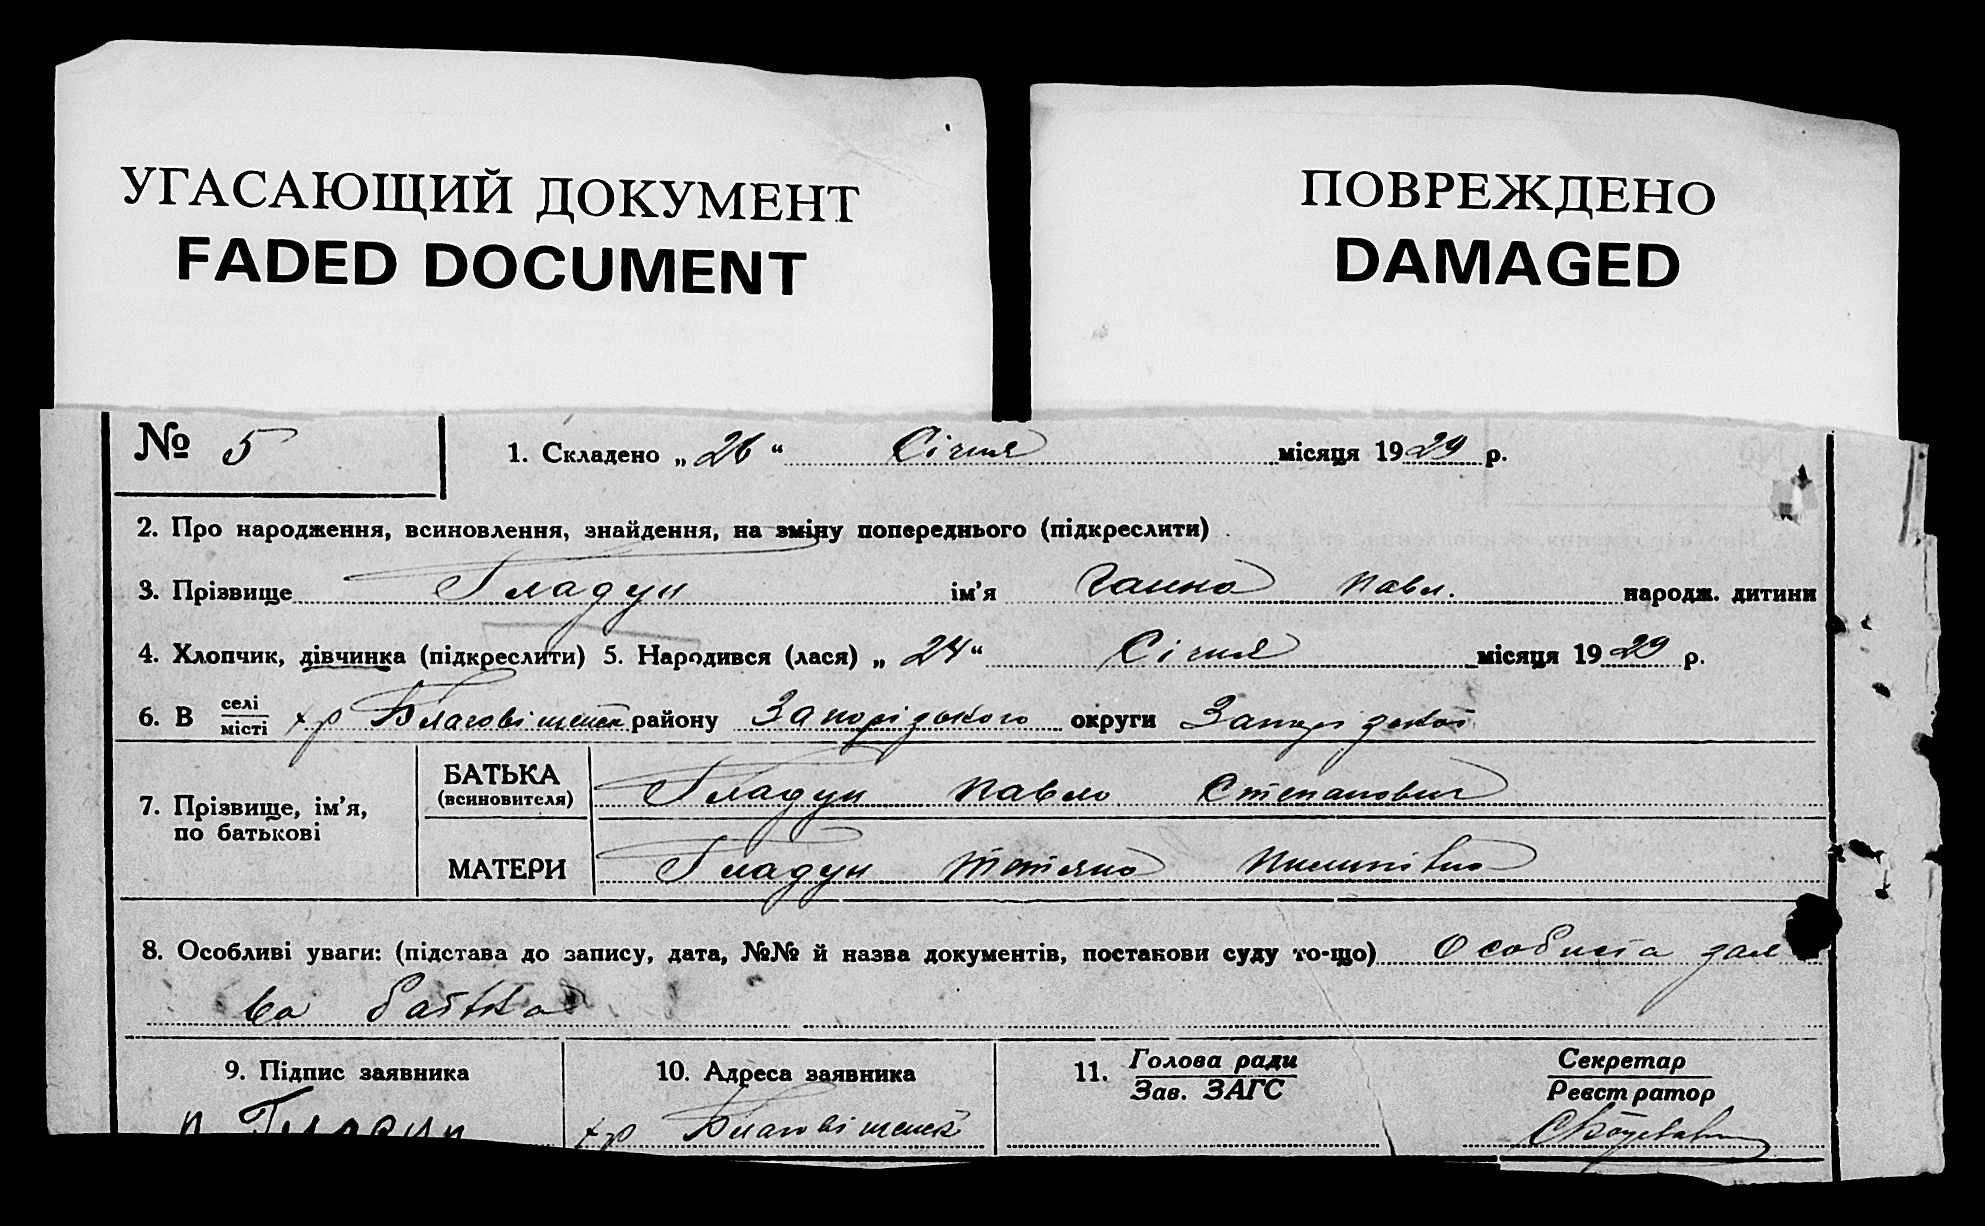 УГАСАЮЩИЙ ДОКУМЕНТ
FADED DOCUMENT
ПОВРЕЖДЕНО
DAMAGED
№ 5
1. Складено „ 26 “ Січня місяця 1929 р.
2. Про народження, всиновлення, знайдення, на зміну попереднього (підкреслити)
3. Прізвище Гладун ім'я Ганна Павл. народж. дитини
4. Хлопчик, дівчинка (підкреслити) 5. Народився (лася) „ 24 “ Січня місяця 1929 р.
6. В селі/місті х-р Благовіщенск району Запорізького округи Запорізької
7. Прізвище, ім'я, по батькові
БАТЬКА (всиновителя) Гладун Павло Степанович
МАТЕРИ Гладун Тетяна
8. Особливі уваги: (підстава до запису, дата, №№ й назва документів, постакови суду то-що) Особиста заял
ва батька
9. Підпис заявника
10. Адреса заявника
11. Голова ради / Зав. ЗАГС
Секретар / Реєстратор
П Гладун
х-р Благовіщенск